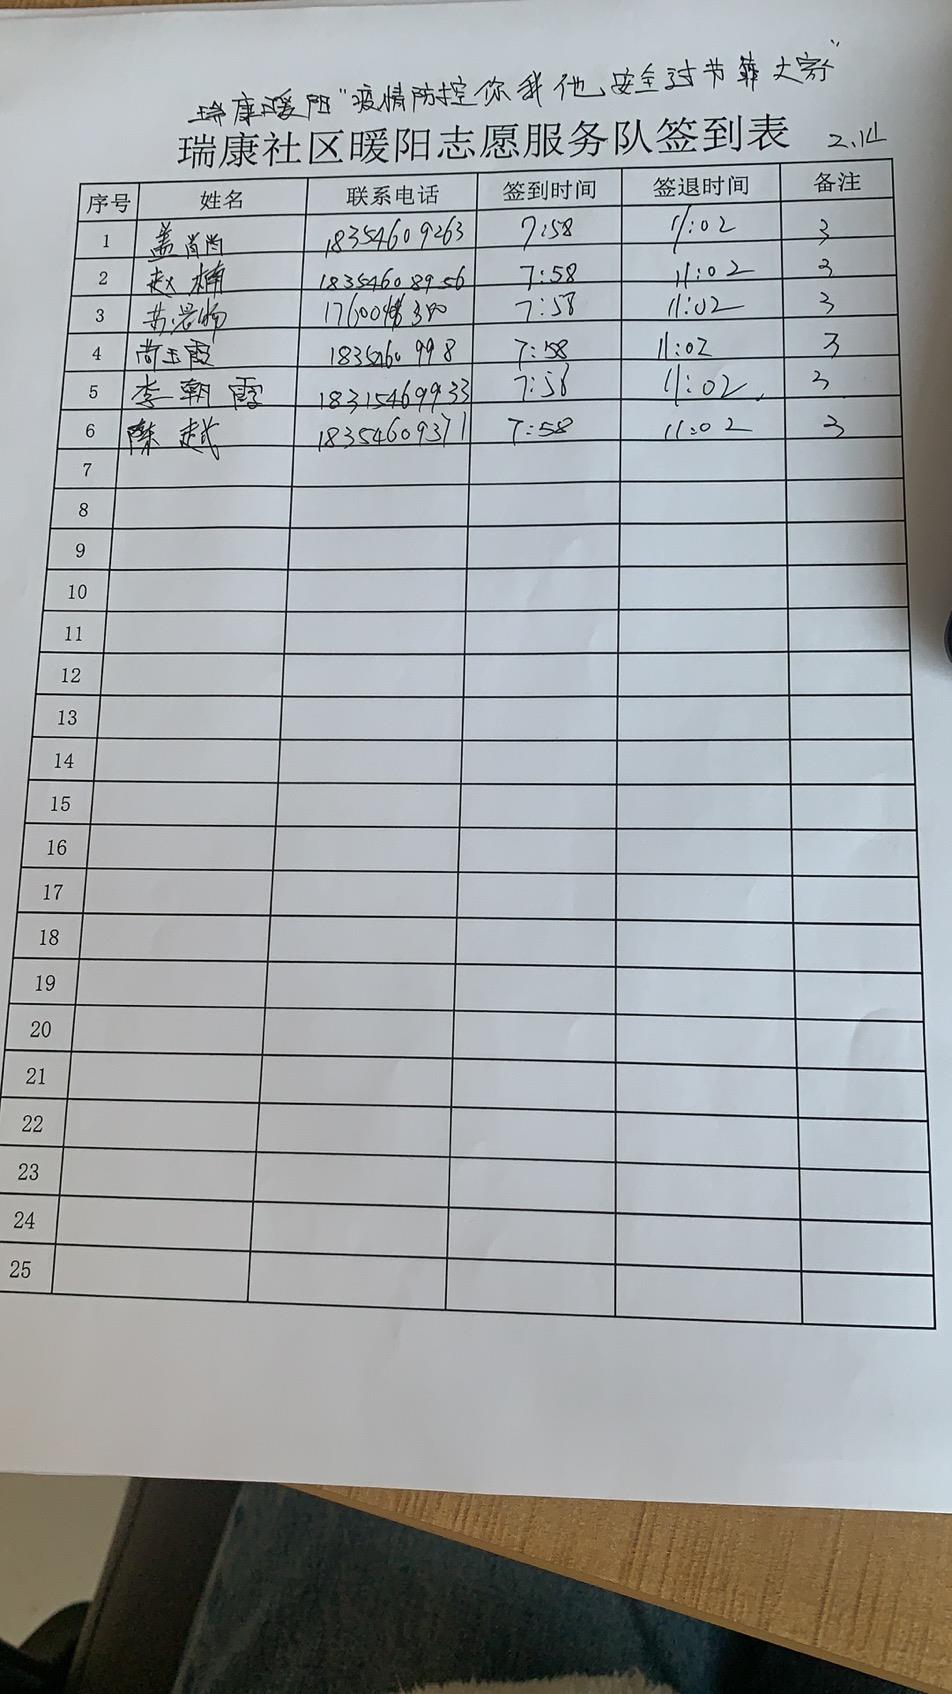 瑞康暖阳"疫情防控你我他,安全过节靠大家"
瑞康社区暖阳志愿服务队签到表 2.14
序号 姓名 联系电话 签到时间 签退时间 备注
1 盖尚尚 18354609263 7:58 11:02 3
2 赵楠 18354608956 7:58 11:02 3
3 7:58 11:02 3
4 尚玉霞 7:58 11:02 3
5 李朝霞 18315469933 7:58 11:02 3
6 陈 18354609371 7:58 11:02 3
7
8
9
10
11
12
13
14
15
16
17
18
19
20
21
22
23
24
25